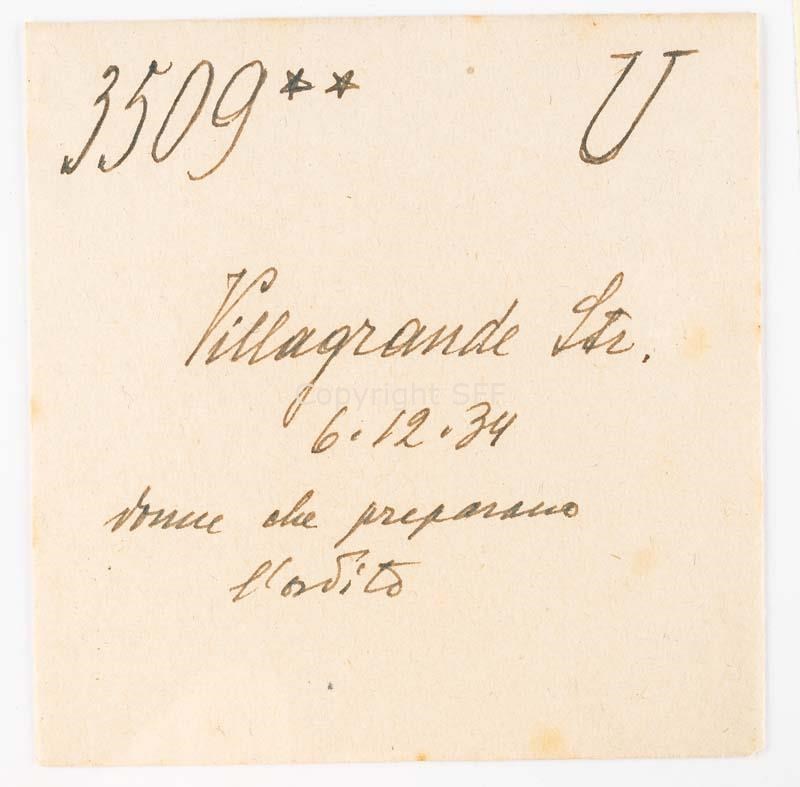 3509** U
Villagrande Str.
Copyright SFF
6.12.34
donne che preparano
l'ordito